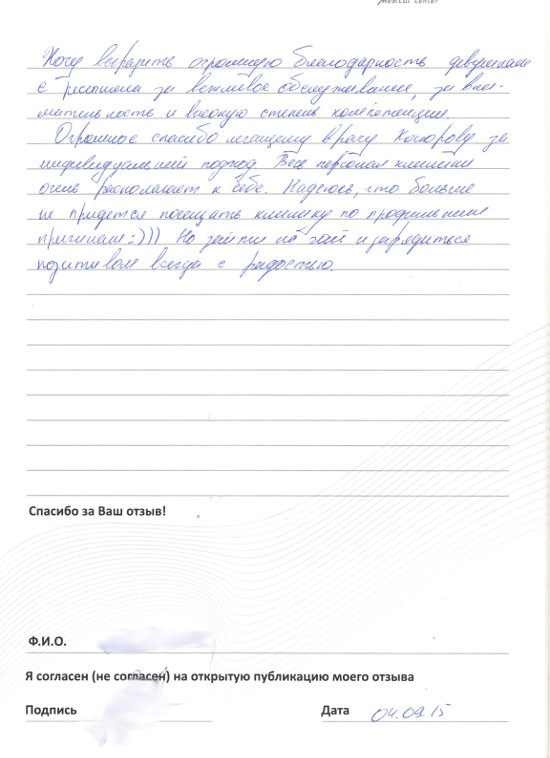 Medical Center
Хочу выразить огромную благодарность девушкам
с ресепшена за вежливое обслуживание, за вни-
мательность и высокую степень компетенции.
Огромное спасибо лечащему врачу Комарову за
индивидуальный подход. Весь персонал клиники
очень располагает к себе. Надеюсь, что больше
не придется посещать клинику по профильным
причинам :))) Но зайти на чай и зарядиться
позитивом всегда с радостью.
Спасибо за Ваш отзыв!
Ф.И.О.
Я согласен (не согласен) на открытую публикацию моего отзыва
Подпись Дата 04.09.15